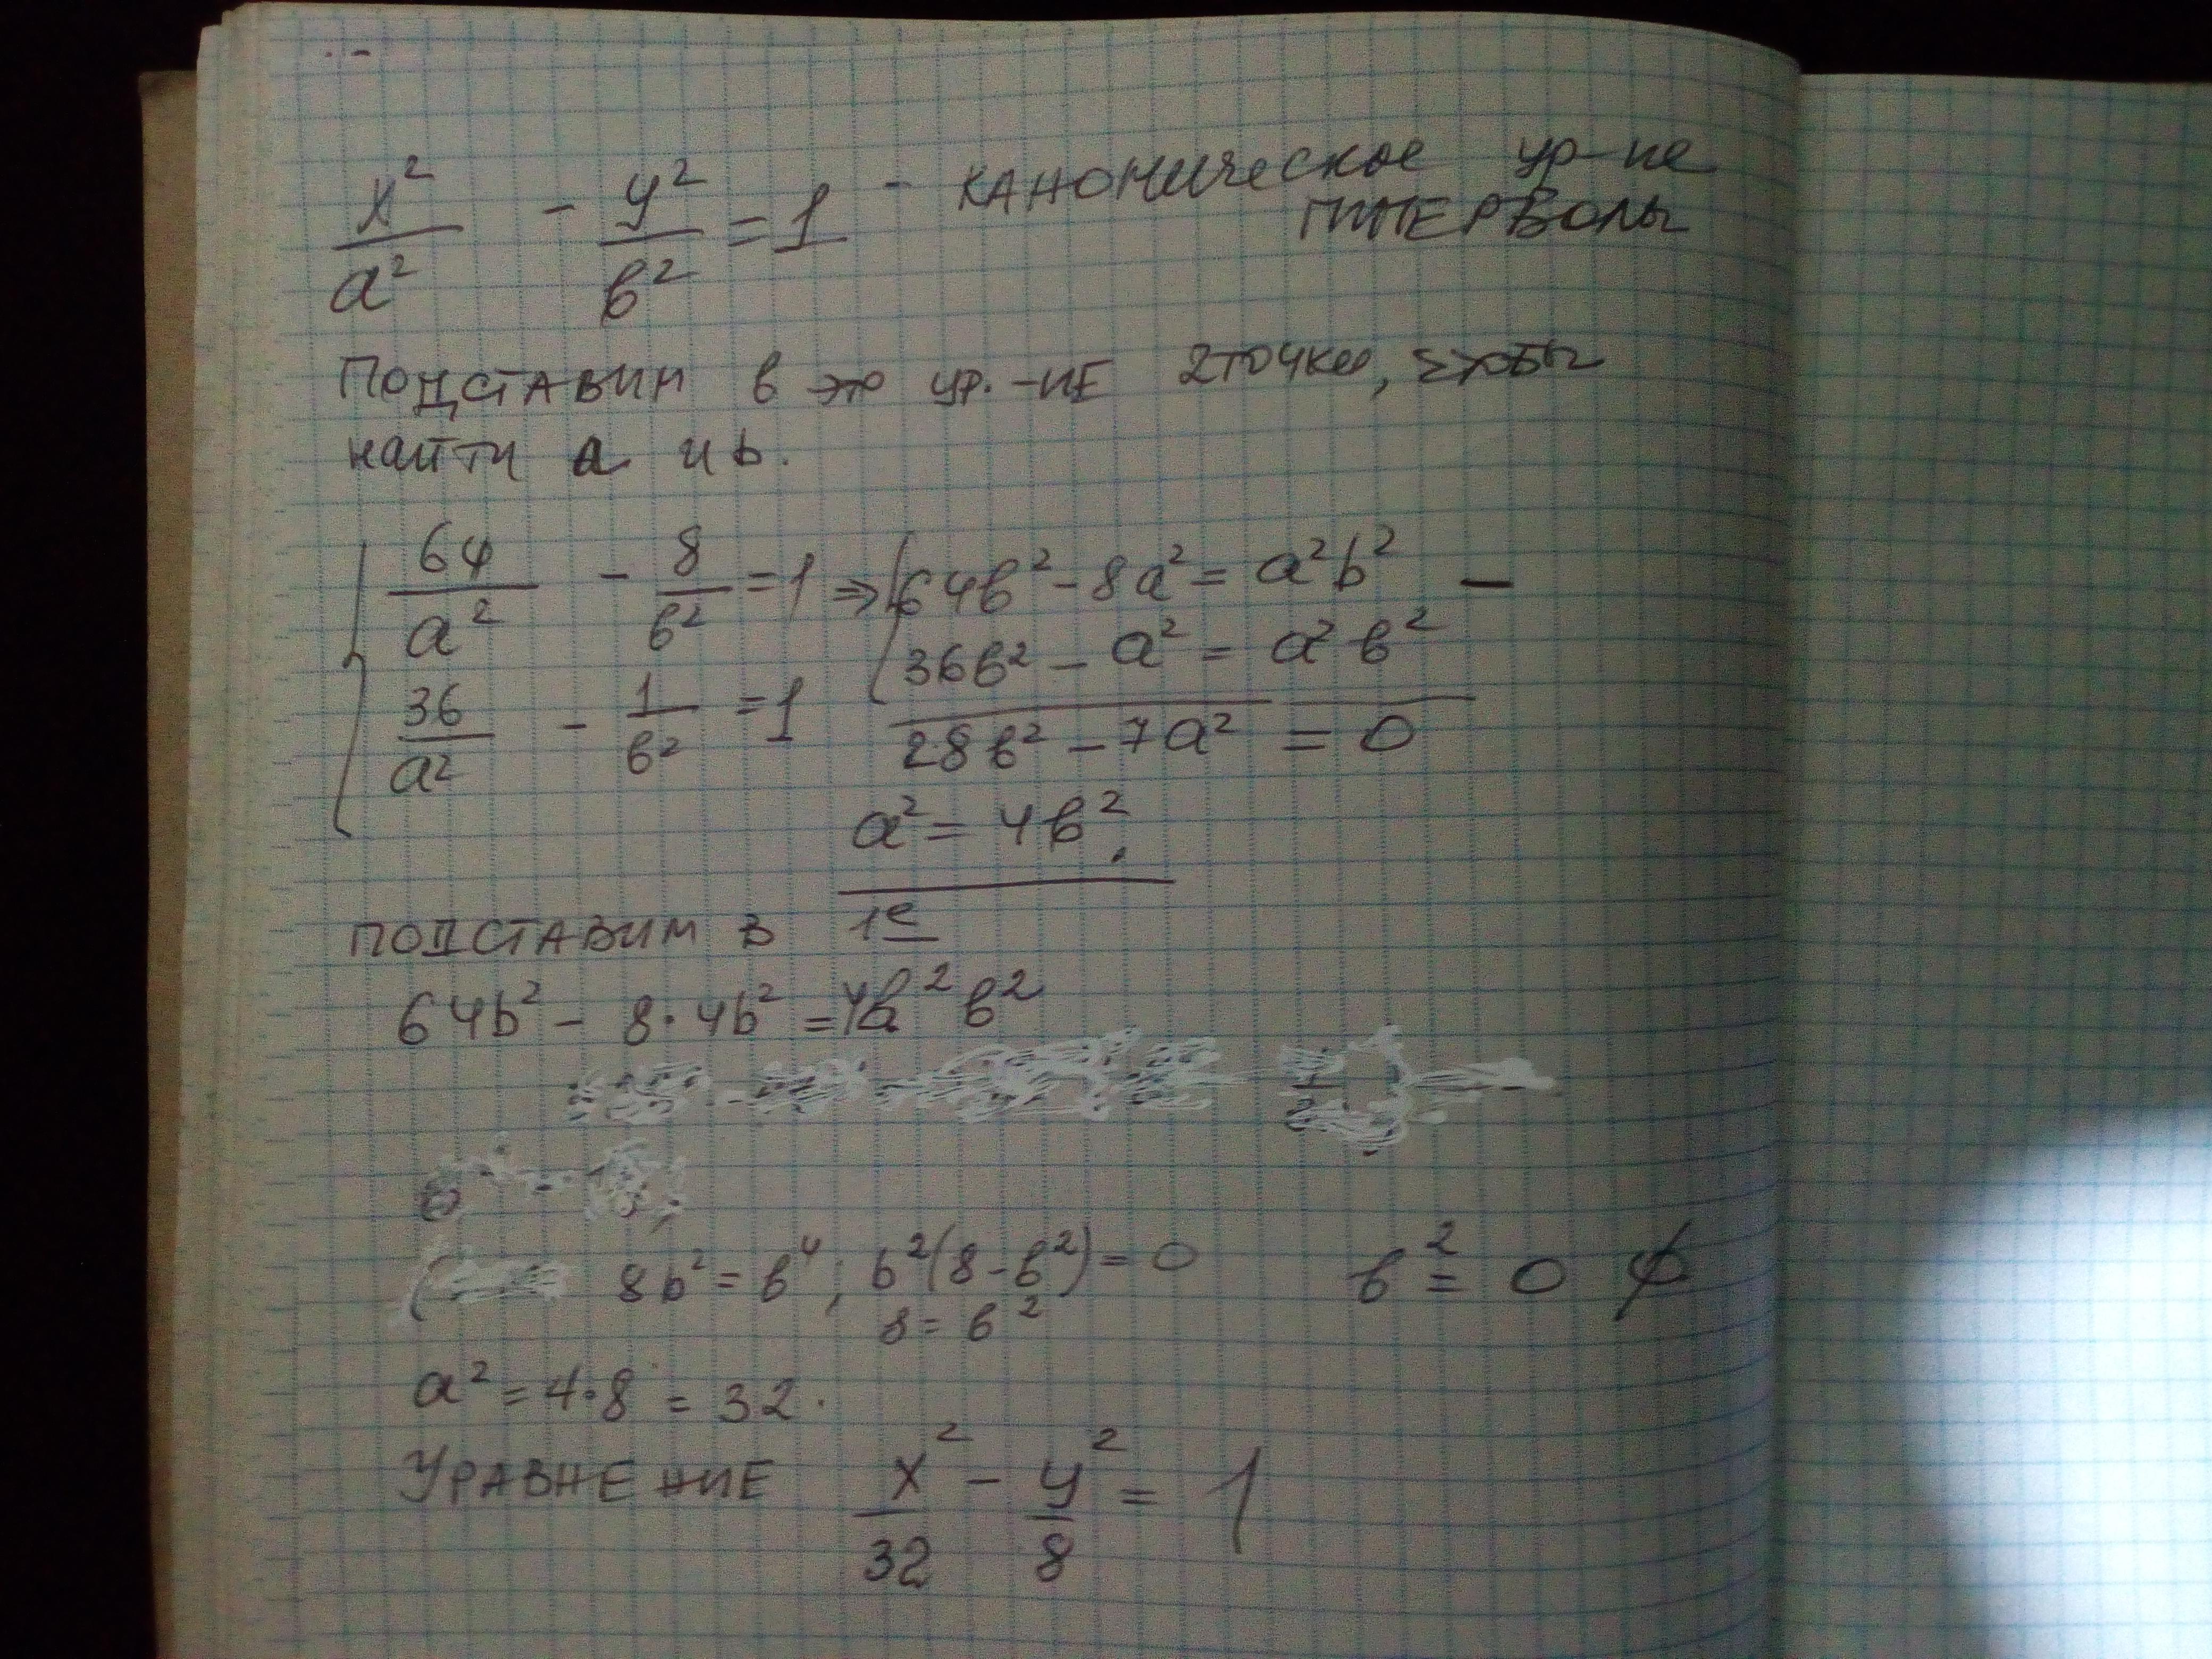 x²/a² - y²/в² = 1 - каноническое ур-ие
гиперволы
Подставим в это ур.-ие 2точки, чтобы
найти а и b.
64/a² - 8/в² = 1 ⇒ 64в² - 8a² = a²b² −
36в² - a² = a²в²
36/a² - 1/в² = 1
28в² - 7a² = 0
a² = 4в².
подставим в 1е
64b² - 8·4b² = 4в²в²
8b² = в⁴; b²(8-в²) = 0 в² = 0 ∅
8 = в²
a² = 4·8 = 32.
Уравнение x²/32 - y²/8 = 1